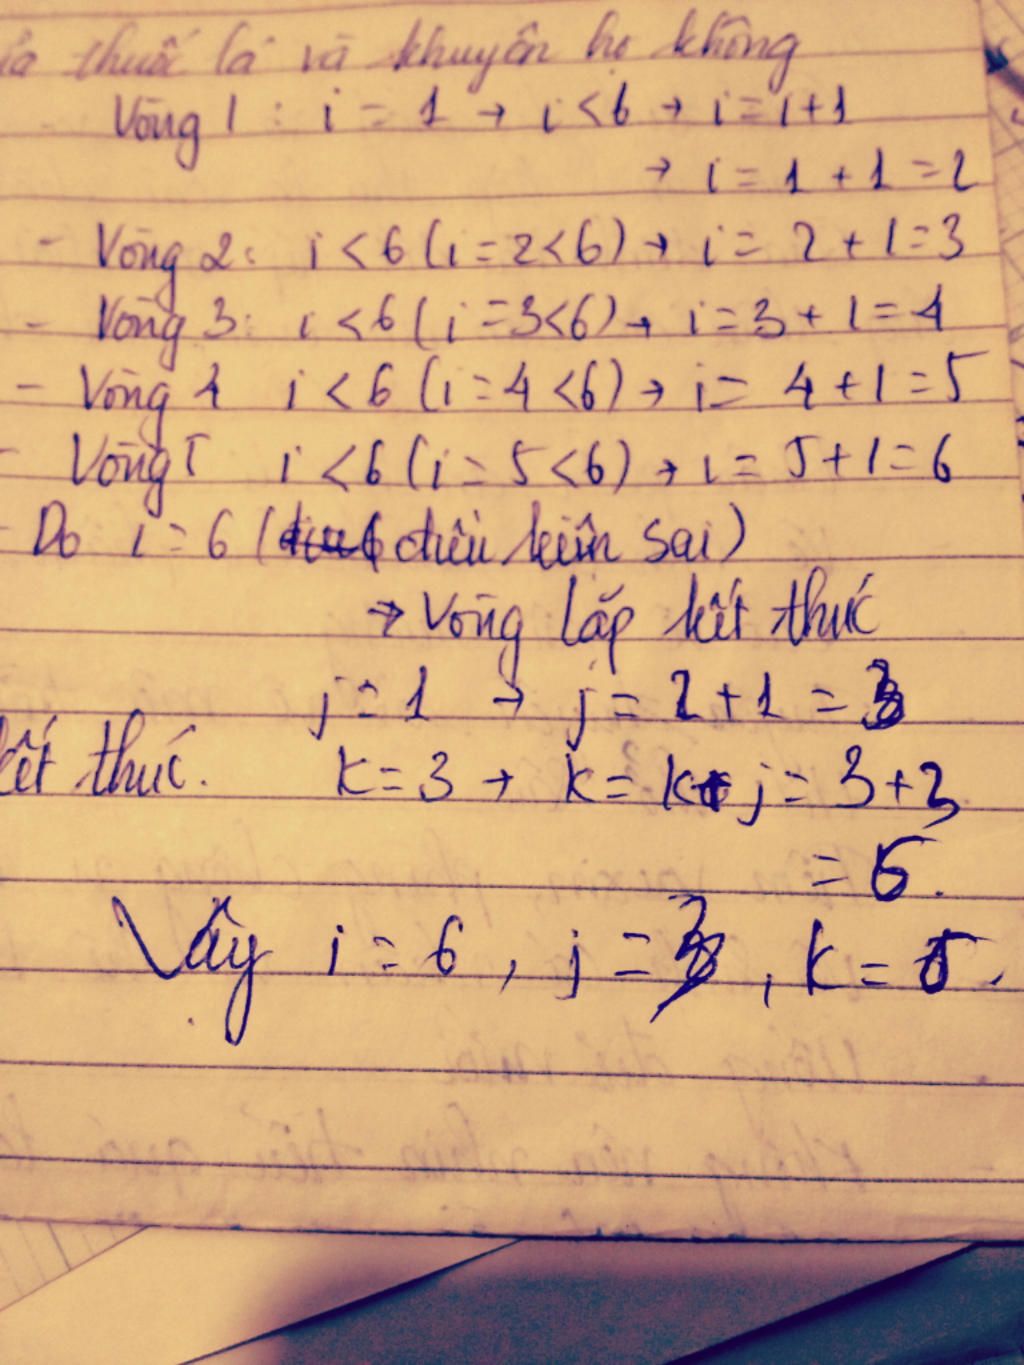 thuốc lá và khuyên họ không
Vòng 1 : i = 1 → i < 6 → i = i + 1
→ i = 1 + 1 = 2
- Vòng 2: i < 6 (i = 2 < 6) → i = 2 + 1 = 3
- Vòng 3: i < 6 (i = 3 < 6) → i = 3 + 1 = 4
- Vòng 4 i < 6 (i = 4 < 6) → i = 4 + 1 = 5
- Vòng 5 i < 6 (i = 5 < 6) → i = 5 + 1 = 6
- Do i = 6 (điều kiện sai)
→ Vòng lặp kết thúc
j = 1 → j = 2 + 1 = 3
kết thúc. k = 3 → k = k + j = 3 + 3
= 6.
Vậy i = 6, j = 3, k = 6.
- Uống đủ nước